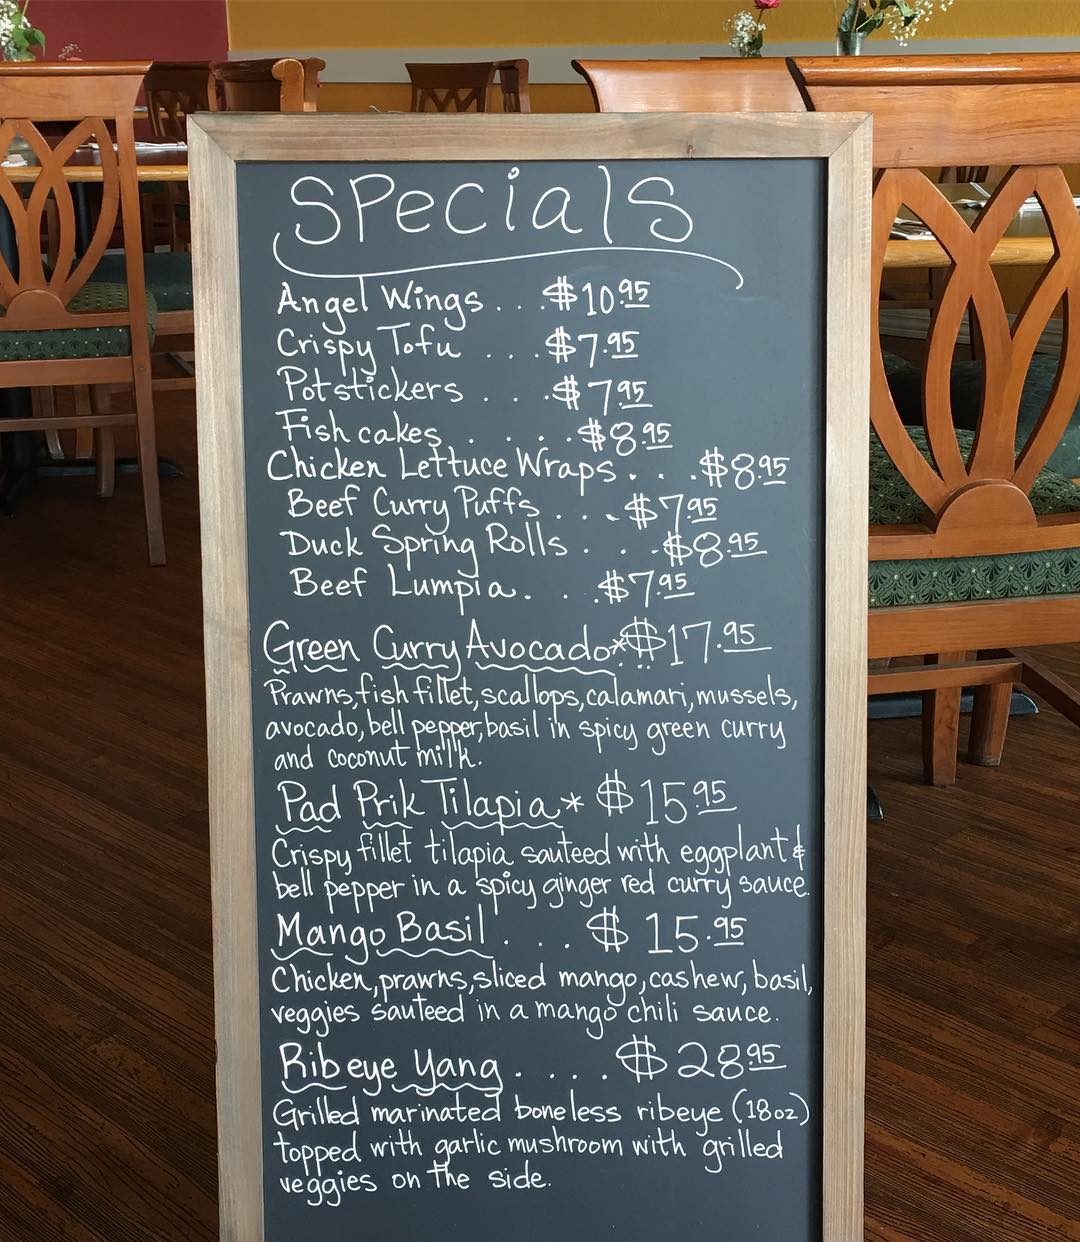 Specials
Angel Wings . . . $10.95
Crispy Tofu . . . $7.95
Potstickers . . . $7.95
Fish cakes . . . . . $8.95
Chicken Lettuce Wraps . . . $8.95
Beef Curry Puffs . . . $7.95
Duck Spring Rolls . . . $8.95
Beef Lumpia . . . $7.95
Green Curry Avocado* $17.95
Prawns, fish fillet, scallops, calamari, mussels,
avocado, bell pepper, basil in spicy green curry
and coconut milk.
Pad Prik Tilapia* $15.95
Crispy fillet tilapia sauteed with eggplant &
bell pepper in a spicy ginger red curry sauce.
Mango Basil . . . $15.95
Chicken, prawns, sliced mango, cashew, basil,
veggies sauteed in a mango chili sauce.
Ribeye Yang . . . . $28.95
Grilled marinated boneless ribeye (18oz)
topped with garlic mushroom with grilled
veggies on the side.